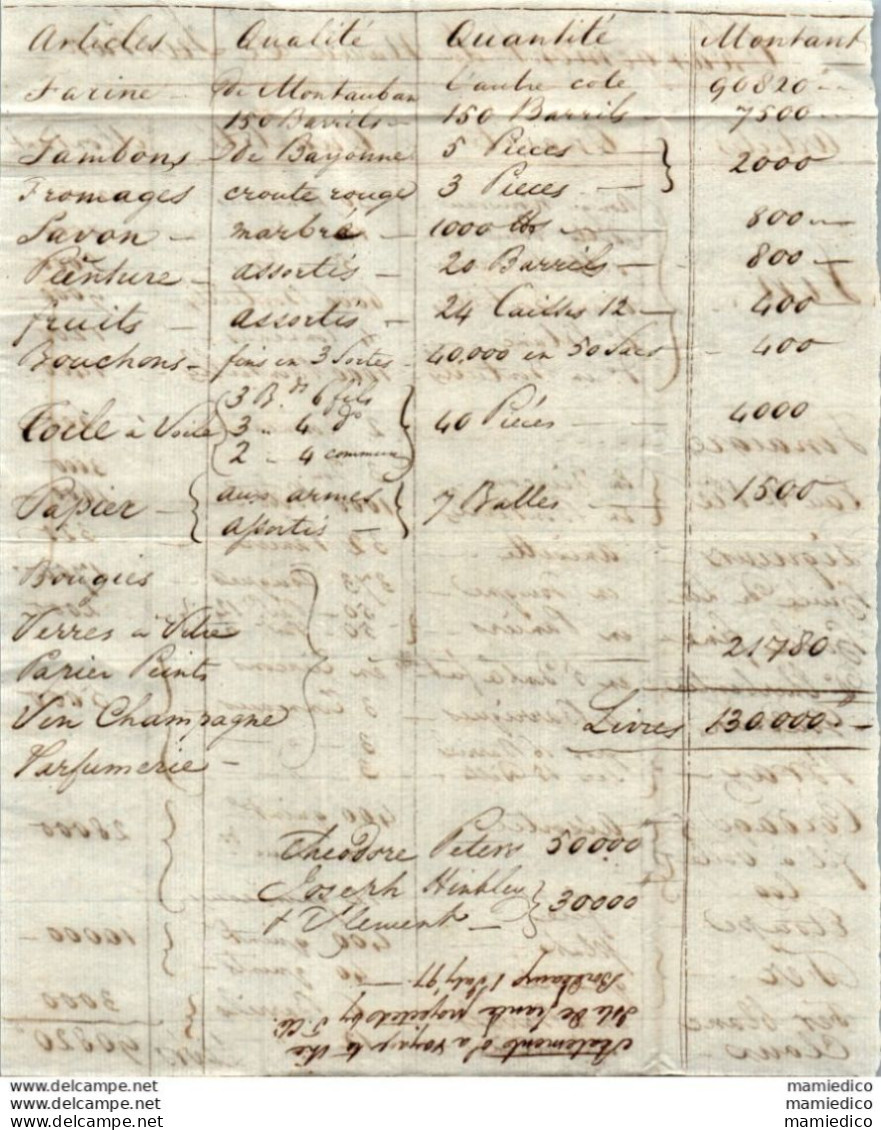 Articles Qualité Quantité Montant
Farine de Montauban l'autre coté 90820
150 Barrils 150 Barrils 7500
Jambons de Bayonne 5 Pieces 2000
Fromages croute rouge 3 Pieces
Savon marbré 1000 lbs 800
Peinture assortis 20 Barrils 800
fruits assortis 24 12 400
Bouchons fins en 3 Sortes 40,000 en 50 Sacs 400
3 Bds 6 fils
Toile à Voile 3 " 4 do 40 Piéces 4000
2 " 4 commun
Papier aux armes 7 Balles 1500
assortis
Bougies
Verres à Vitre
21780
Papier Peints
Vin Champagne Livres 130.000
Parfumerie
Theodore Peters 50000
Joseph Hinkley 30000
&
Statement of a voyage to the
Isle de france projected by
July 97
mamiedico
mamiedico
mamiedico